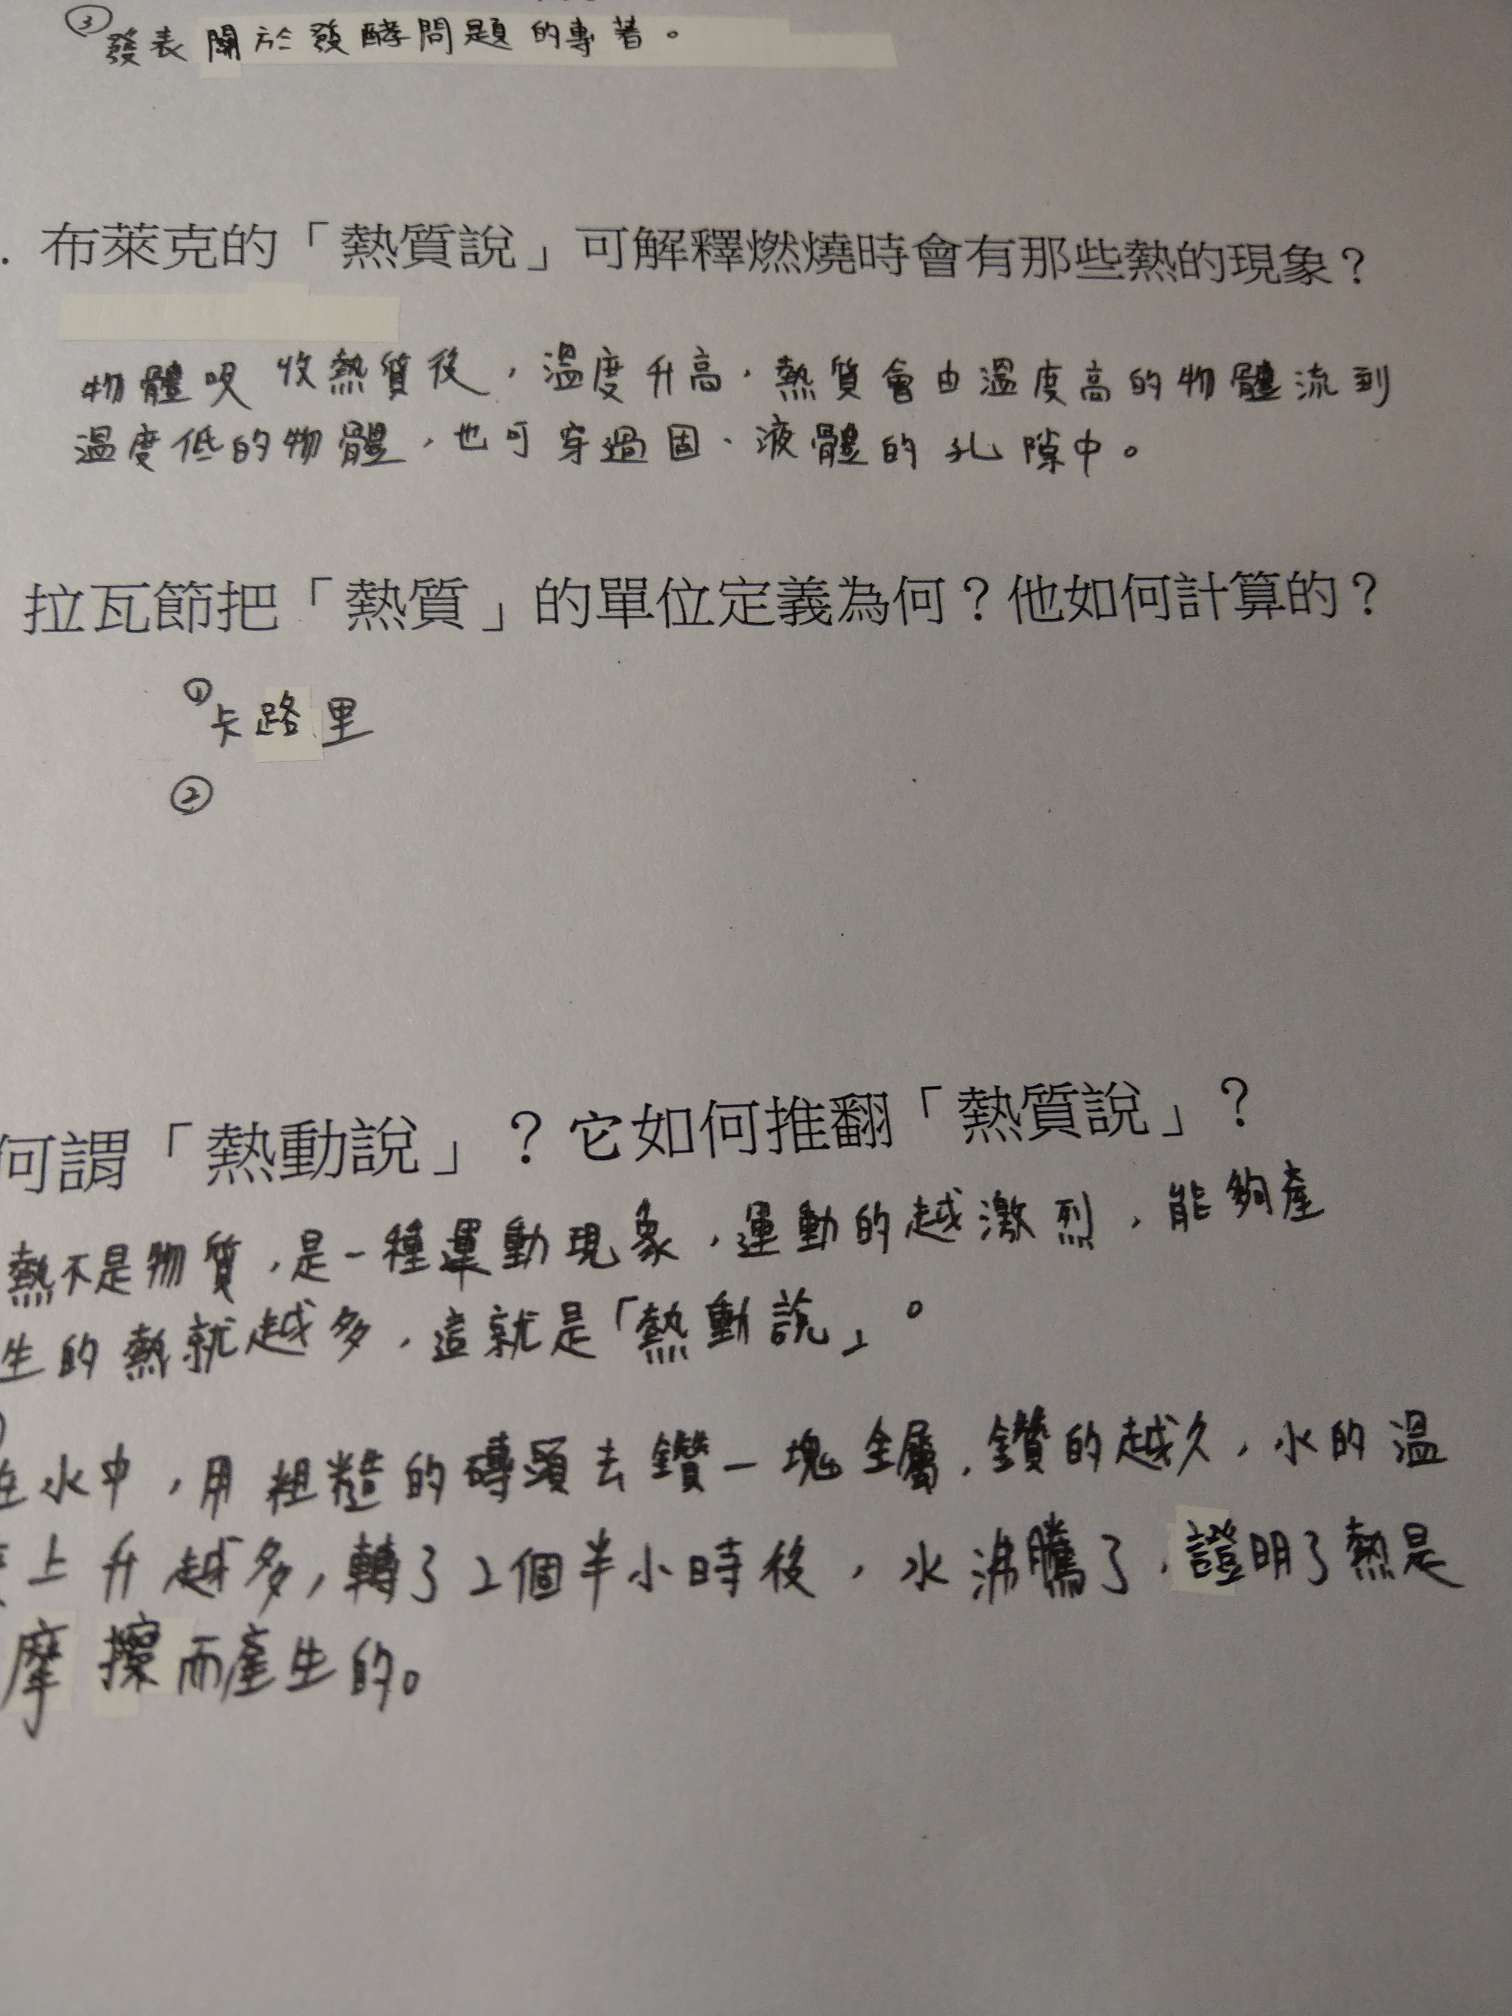 ③發表關於發酵問題的專著。
. 布萊克的「熱質說」可解釋燃燒時會有那些熱的現象？
物體吸收熱質後，溫度升高，熱質會由溫度高的物體流到
溫度低的物體，也可穿過固、液體的孔隙中。
拉瓦節把「熱質」的單位定義為何？他如何計算的？
①卡路里
②
何謂「熱動說」？它如何推翻「熱質說」？
熱不是物質，是一種運動現象，運動的越激烈，能夠產
生的熱就越多，這就是「熱動說」。
在水中，用粗糙的磚頭去鑽一塊金屬，鑽的越久，水的溫
上升越多，轉了2個半小時後，水沸騰了，證明了熱是
摩擦而產生的。